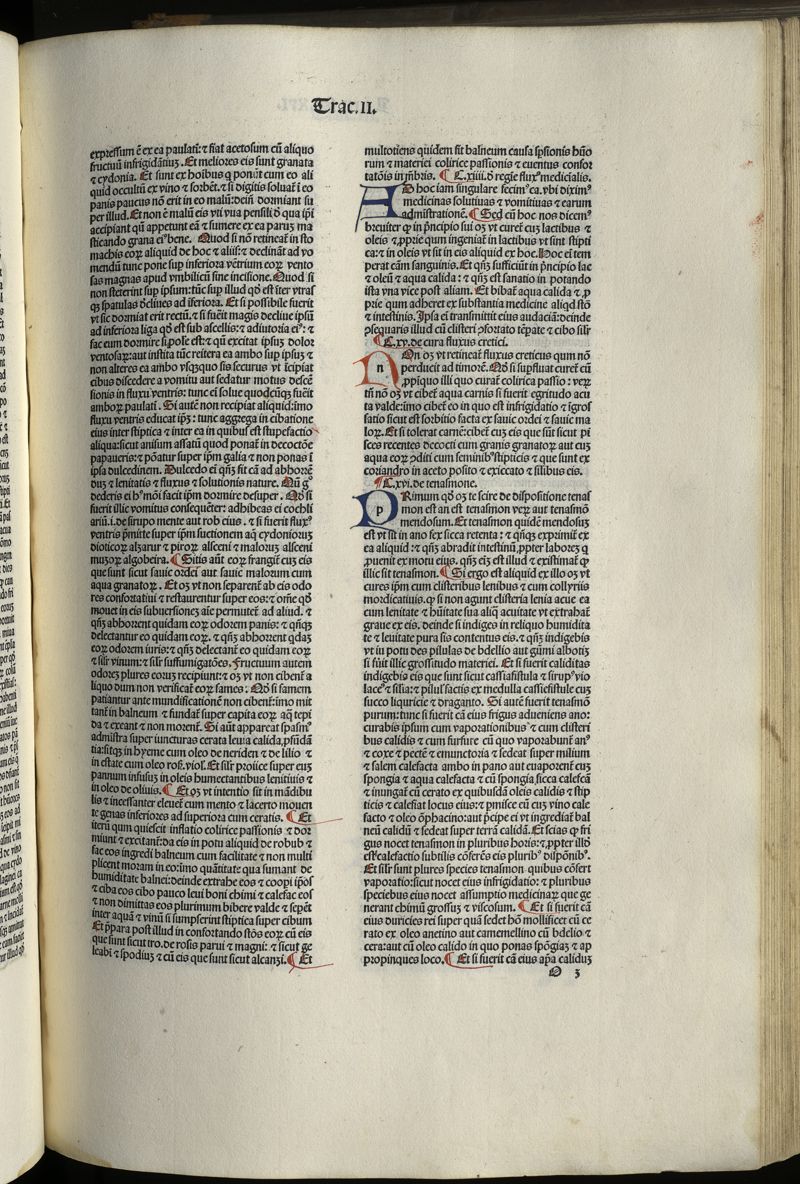 Trac.II.
expressum ē ex ea paulatī: ⁊ fiat acetosum cū aliquo
fructuū infrigidātiuȝ. Et meliores eis sunt granata
⁊ cydonia. Et sunt ex hoibus q̄ ponūt cum eo ali
quid occultū ex vino ⁊ sorbēt. ⁊ si digitis soluaī ī eo
panis paucus nō erit in eo malū: dein̄ dormiant su
per illud. Et non ē malū eis vti vua pensili
accipiant quā appetunt eā ⁊ sumere ex ea parūȝ ma
sticando grana eiꝰ bene. Quod si nō retineat in sto
machis eoꝝ aliquid de hoc ⁊ aliis: ⁊ declinat ad vo
mendū tunc pone sup inferiora vētrium eoꝝ vento
sas magnas apud vmbilicū sine incisione. Quod si
non steterint sup ipsum: tūc sup illud qd̄ est iter vtras
qȝ spatulas declives ad iferiora. Et si possibile fuerit
vt sic dormiat erit rectū. ⁊ si fuēit magis decliue ipsū
ad inferiora liga qd̄ est sub ascellis: ⁊ adiutoria eiꝰ: ⁊
fac eum dormire si pole est: ⁊ qn̄ excitat ipsuȝ dolor
ventosaꝝ: aut instita tūc reitera ea ambo sup ipsuȝ ⁊
non alteres ea ambo vsqȝquo sis securus vt īcipiat
cibus discedere a vomitu aut sedatur motus descē
sionis in fluxu ventris: tunc ei solue quodcūqȝ fuēit
amboꝝ paulatī. Si autē non recipiat aliquid: imo
fluxu ventris educat ipȝ: tunc aggrega in cibatione
eius inter stiptica ⁊ inter ea in quibus est stupefactio
aliqua: sicut anisum assatū quod ponat in decoctōe
papaueris: ⁊ pōatur super ipm galia ⁊ non ponas ī
ipsa dulcedinem. Dulcedo ei qn̄qȝ fit cā ad abhorrē
duȝ ⁊ lenitatis ⁊ fluxus ⁊ solutionis nature. Nū gͦ
dederis ei hꝰmoī facit ipm dormire desuper. Qd̄ si
fuerit illic vomitus consequēter: adhibeas ei cochli
ariū.i. de sirupo mente aut rob eius. ⁊ si fuerit fluxꝰ
ventris pmitte super ipm suctionem aq̄ cydonioruȝ
⁊ piroꝝ alseeni ⁊ maloruȝ alseeni
muzoꝝ algobeira. ¶ Sitis aūt eoꝝ frangit cuȝ eis
que sunt sicut sauic ordei aut sauic malorum cum
aqua granatoꝝ. Et oȝ vt non separent̄ ab eis odo
res confortatiui ⁊ restaurentur super eos: ⁊ om̄e qd̄
mouet in eis subuersioneȝ aīe permutet̄ ad aliud. ⁊
qn̄qȝ abhorrent quidam eoꝝ odorem panis: ⁊ qn̄qȝ
delectantur eo quidam eoꝝ. ⁊ qn̄qȝ abhorrent qdaȝ
eoꝝ odorem iuris: ⁊ qn̄qȝ delectant̄ eo quidam eoꝝ
⁊ silr vinum: ⁊ silr suffumigatōes. Fructuum autem
odores plures eorum recipiunt: ⁊ oȝ vt non cibent̄ a
liquo dum non verificat̄ eoꝝ fames. Qd̄ si famem
patiantur ante mundificationē non cibent̄: imo mit
tant̄ in balneum ⁊ fundat̄ super capita eoꝝ aq̄ tepi
da ⁊ exeant ⁊ non morent̄. Si aūt appareat spasmꝰ
admīstra super iuncturas cerata leuia calida, psūdā
tia: sitqȝ in hyeme cum oleo de neriden ⁊ de lilio ⁊
in estate cum oleo ros. viol. Et silr proiice super eus
pannum infusuȝ in oleis humectantibus lenitiuis ⁊
in oleo de oliuis. ¶ Et oȝ vt intentio sit in mādibu
lis ⁊ incessanter eleuet̄ cum mento ⁊ lacerto mouen
te genas inferiores ad superiora cum ceratis. ¶ Et
iterū qum quiescit inflatio colirice passionis ⁊ dor
miunt ⁊ excitant̄: da eis in potu aliquid de robub ⁊
fac eos ingredi balneum cum facilitate ⁊ non multi
plicent moram in eo: imo quātitate qua sumant de
humiditate balnei: deinde extrahe eos ⁊ coopi ipos
⁊ ciba eos cibo pauco leui boni chimi ⁊ calefac eos
⁊ non dimittas eos plurimum bibere valde ⁊ sepēt
inter aquā ⁊ vinū si sumpserint stiptica super cibum
Et p̄para post illud in confortando stōs eoꝝ cū eis
que sunt sicut tro. de rosis parui ⁊ magni: ⁊ sicut ge
leabi ⁊ spodiuȝ ⁊ cū eis que sunt sicut alcanzi. ¶ Et
multotiens quidem fit balneum causa
rum ⁊ materiei colirice passionis ⁊ euentus confor
tatōis in mēbris. ¶ C.xiiii. d̄ regīe fluxꝰ medicīalis.
AD hoc iam singulare fecimꝰ ca. vbi diximꝰ
medicinas solutiuas ⁊ vomitiuas ⁊ earum
admīstrationē. ¶ Sed cū hoc nos dicemꝰ
breuiter ꝙ in p̄ncipio sui oȝ vt curet̄ cuȝ lactibus ⁊
oleis ⁊ pprie qum ingeniat̄ in lactibus vt sint stipti
ca: ⁊ in oleis vt sit in eis aliquid ex hoc. Hoc ei tem
perat eām sanguinis. Et qn̄qȝ sufficiūt in p̄ncipio lac
⁊ oleū ⁊ aqua calida: ⁊ qn̄qȝ est sanatio in potando
ista vna vice post aliam. Et bibat̄ aqua calida ⁊ p
prie qum adheret ex substantia medicine aliqd stō
⁊ intestinis. Ipsa ei transmittit eius audaciā: deinde
psequaris illud cū clisteri pfortato tēpate ⁊ cibo silr
¶ C.xv. de cura fluxus cretici.
NOn oȝ vt retineat̄ fluxus creticus qum nō
perducit ad timorē. Qd̄ si supfluat curet̄ cū
ppiquo illi quo curat̄ colirica passio: veꝝ
tn̄ nō oȝ vt cibet̄ aqua carnis si fuerit egritudo acu
ta valde: imo cibet̄ eo in quo est infrigidatio ⁊ igros
satio sicut est sorbitio facta ex sauic ordei ⁊ sauic ma
loꝝ. Et si tolerat carnē: cibet̄ cuȝ eis que sūt sicut pi
sces recentes decocti cum granis granatoꝝ aut cuȝ
aqua eoꝝ pditi cum seminibꝰ stipticis ⁊ que sunt ex
coriandro in aceto posito ⁊ exiccato ⁊ silibus eis.
¶ C.xvi. de tenasmone.
PRimum qd̄ oȝ te scire de dispositione tenas
mon est an est tenasmon veꝝ aut tenasmō
mendosum. Et tenasmon quidē mendosuȝ
est vt sit in ano fex sicca retenta: ⁊ qn̄qȝ exprimit̄ ex
ea aliquid: ⁊ qn̄qȝ abradit intestinū, ppter laboreȝ q
puenit ex motu eius. qn̄qȝ eīȝ est illud ⁊ existimat̄ ꝙ
illic sit tenasmon. ¶ Si ergo est aliquid ex illo oȝ vt
cures ipm cum clisteribus lenibus ⁊ cum collyriis
mordicatiuis. ꝙ si non agunt clisteria lenia acue ea
cum lenitate ⁊ hūitate sua aliq̄ acuitate vt extrahat̄
graue ex eis. deinde si indiges in reliquo humidita
te ⁊ leuitate pura sis contentus eis. ⁊ qn̄qȝ indigebis
vt in potu des pilulas de bdellio aut gūmi albotiȝ
si fūit illic grossitudo materiei. Et si fuerit caliditas
indigebis eis que sunt sicut cassiafistula ⁊ sirupꝰ vio
laceꝰ ⁊ silia: ⁊ pilulꝰ factis ex medulla cassiefistule cuȝ
succo liquiricie ⁊ draganto. Si autē fuerit tenasmō
purum: tunc si fuerit cā eius frigus adueniens ano:
curabis ipsum cum vaporationibus ⁊ cum clisteri
bus calidis ⁊ cum furfure cū quo vaporabunt̄ anꝰ
⁊ coxe ⁊ pectē ⁊ emunctoria ⁊ sedeat super milium
⁊ salem calefacta ambo in pano aut euaporent̄ cuȝ
spongia ⁊ aqua calefacta ⁊ cū spongia sicca calefcā
⁊ inungat̄ cū cerato ex quibusdā oleis calidis ⁊ stip
ticis ⁊ calefiat locus eius: ⁊ pmisce cū cuȝ vino cale
facto ⁊ oleo ōphacino: aut p̄cipe ei vt ingrediat̄ bal
neū calidū ⁊ sedeat super terrā calidā. Et scias ꝙ fri
gus nocet tenasmon in pluribus horis: ⁊ ppter illd̄
est calefactio subtilis cōferēs eis pluribꝰ disponībꝰ.
Et silr sunt plures species tenasmon quibus cōfert
vaporatio: sicut nocet eius infrigidatio: ⁊ pluribus
speciebus eius nocet assumptio medicinaꝝ que ge
nerant chimū grossuȝ ⁊ viscosum. ¶ Et si fuerit cā
eius duricies rei super quā sedet hō mollificet̄ cū ce
rato ex oleo anetino aut camemellino cū bdelio ⁊
cera: aut cū oleo calido in quo ponas spōgiaȝ ⁊ ap
propinques loco. ¶ Et si fuerit cā eius calidus
O 3